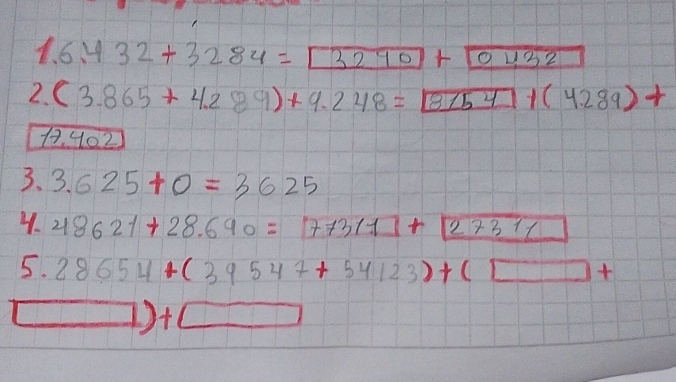 1. 6.432 + 3284 = 3290 + 0432
2. (3.865 + 4.289) + 9.248 = 8154 + (4.289) +
17.402
3. 3.625 + 0 = 3625
4. 48621 + 28.690 = 77311 + 27311
5. 28654 + (39547 + 54123) + ( +
) + (